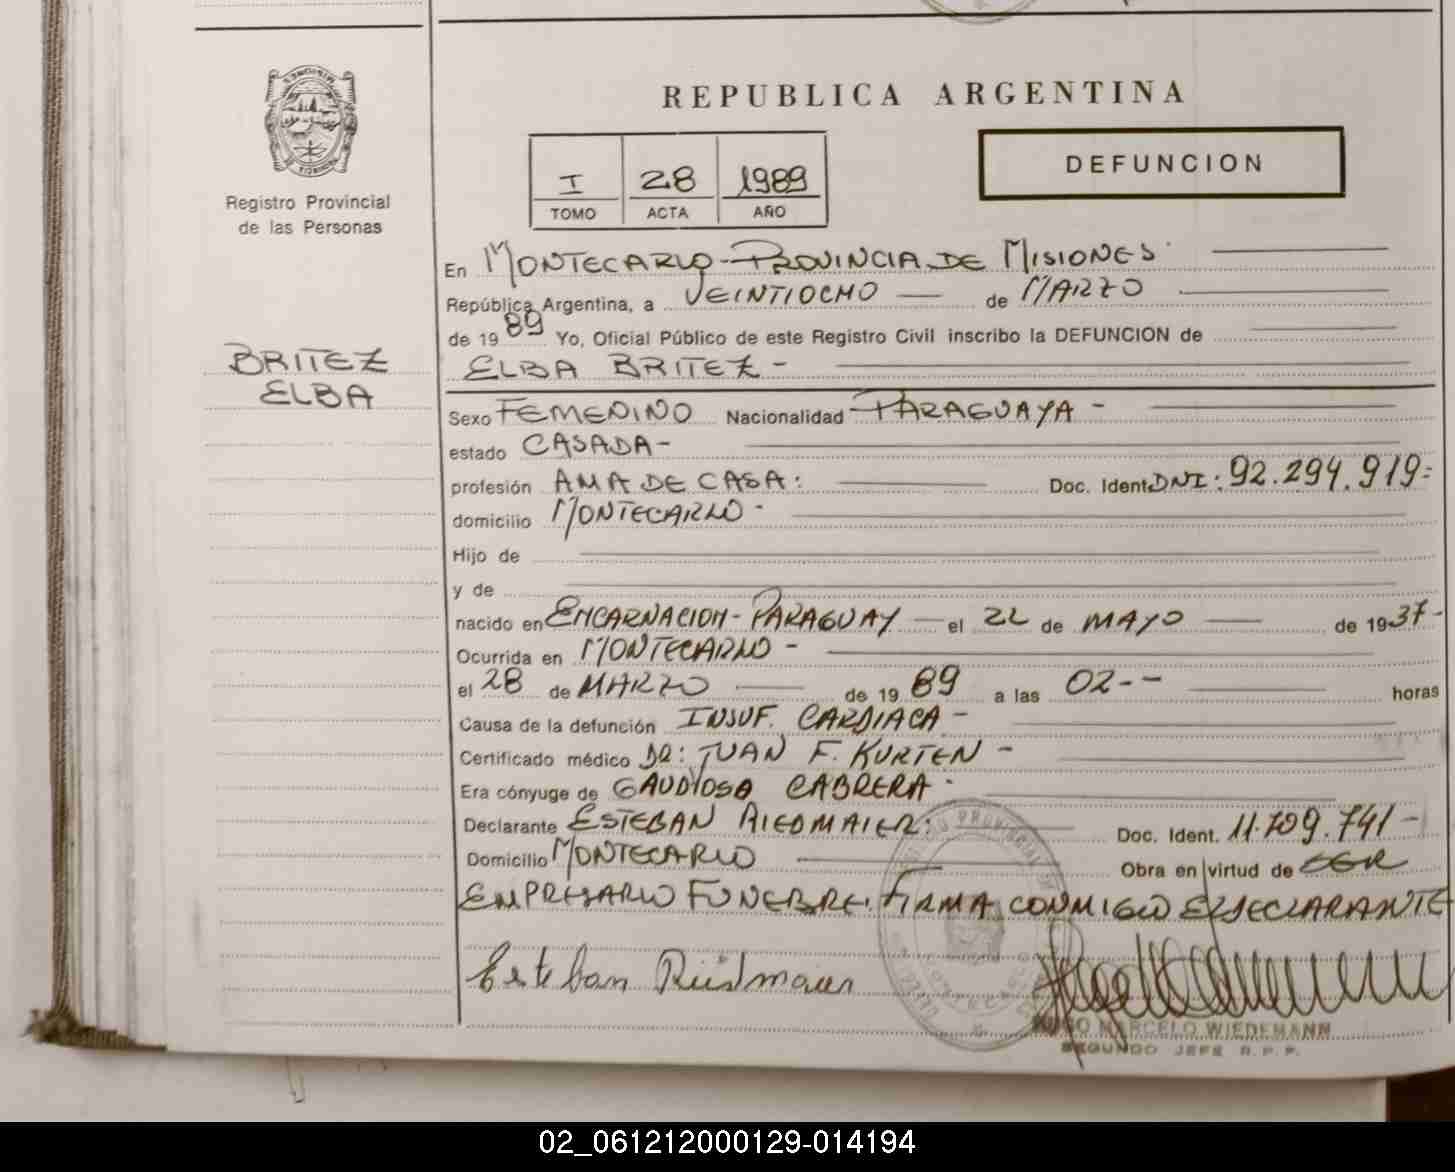 REPUBLICA ARGENTINA
Registro Provincial
de las Personas
I 28 1989
TOMO ACTA AÑO
DEFUNCION
En MONTECARLO-PROVINCIA DE MISIONES
República Argentina, a VEINTIOCHO de MARZO
de 1989 Yo, Oficial Público de este Registro Civil inscribo la DEFUNCION de
BRITEZ
ELBA
ELBA BRITEZ -
Sexo FEMENINO Nacionalidad PARAGUAYA -
estado CASADA -
profesión AMA DE CASA: Doc. Ident. DNI: 92.294.919-
domicilio MONTECARLO -
Hijo de
y de
nacido en ENCARNACION - PARAGUAY el 22 de MAYO de 1937-
Ocurrida en MONTECARLO -
el 28 de MARZO de 1989 a las 02-- horas
Causa de la defunción INSUF. CARDIACA -
Certificado médico DR: JUAN F. KURTEN -
Era cónyuge de GAUDIOSO CABRERA -
Declarante ESTEBAN RIEDMAIER: Doc. Ident. 11.709.741-
Domicilio MONTECARLO Obra en virtud de SER
EMPRESARIO FUNEBRE. FIRMA CONMIGO EL DECLARANTE
Esteban Riedmaier
HUGO MARCELO WIEDEMANN
SEGUNDO JEFE R.P.P.
02_061212000129-014194